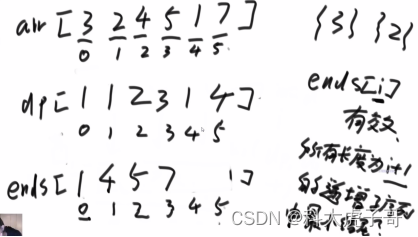 arr [ 3 2 4 5 1 7 ]
0 1 2 3 4 5
{3} {2}
dp [ 1 1 2 3 1 4 ]
0 1 2 3 4 5
ends [ 1 4 5 7 ]
0 1 2 3 4 5
ends[i]
有效
所有长度为i+1
的递增子序列
CSDN @科大虎子哥